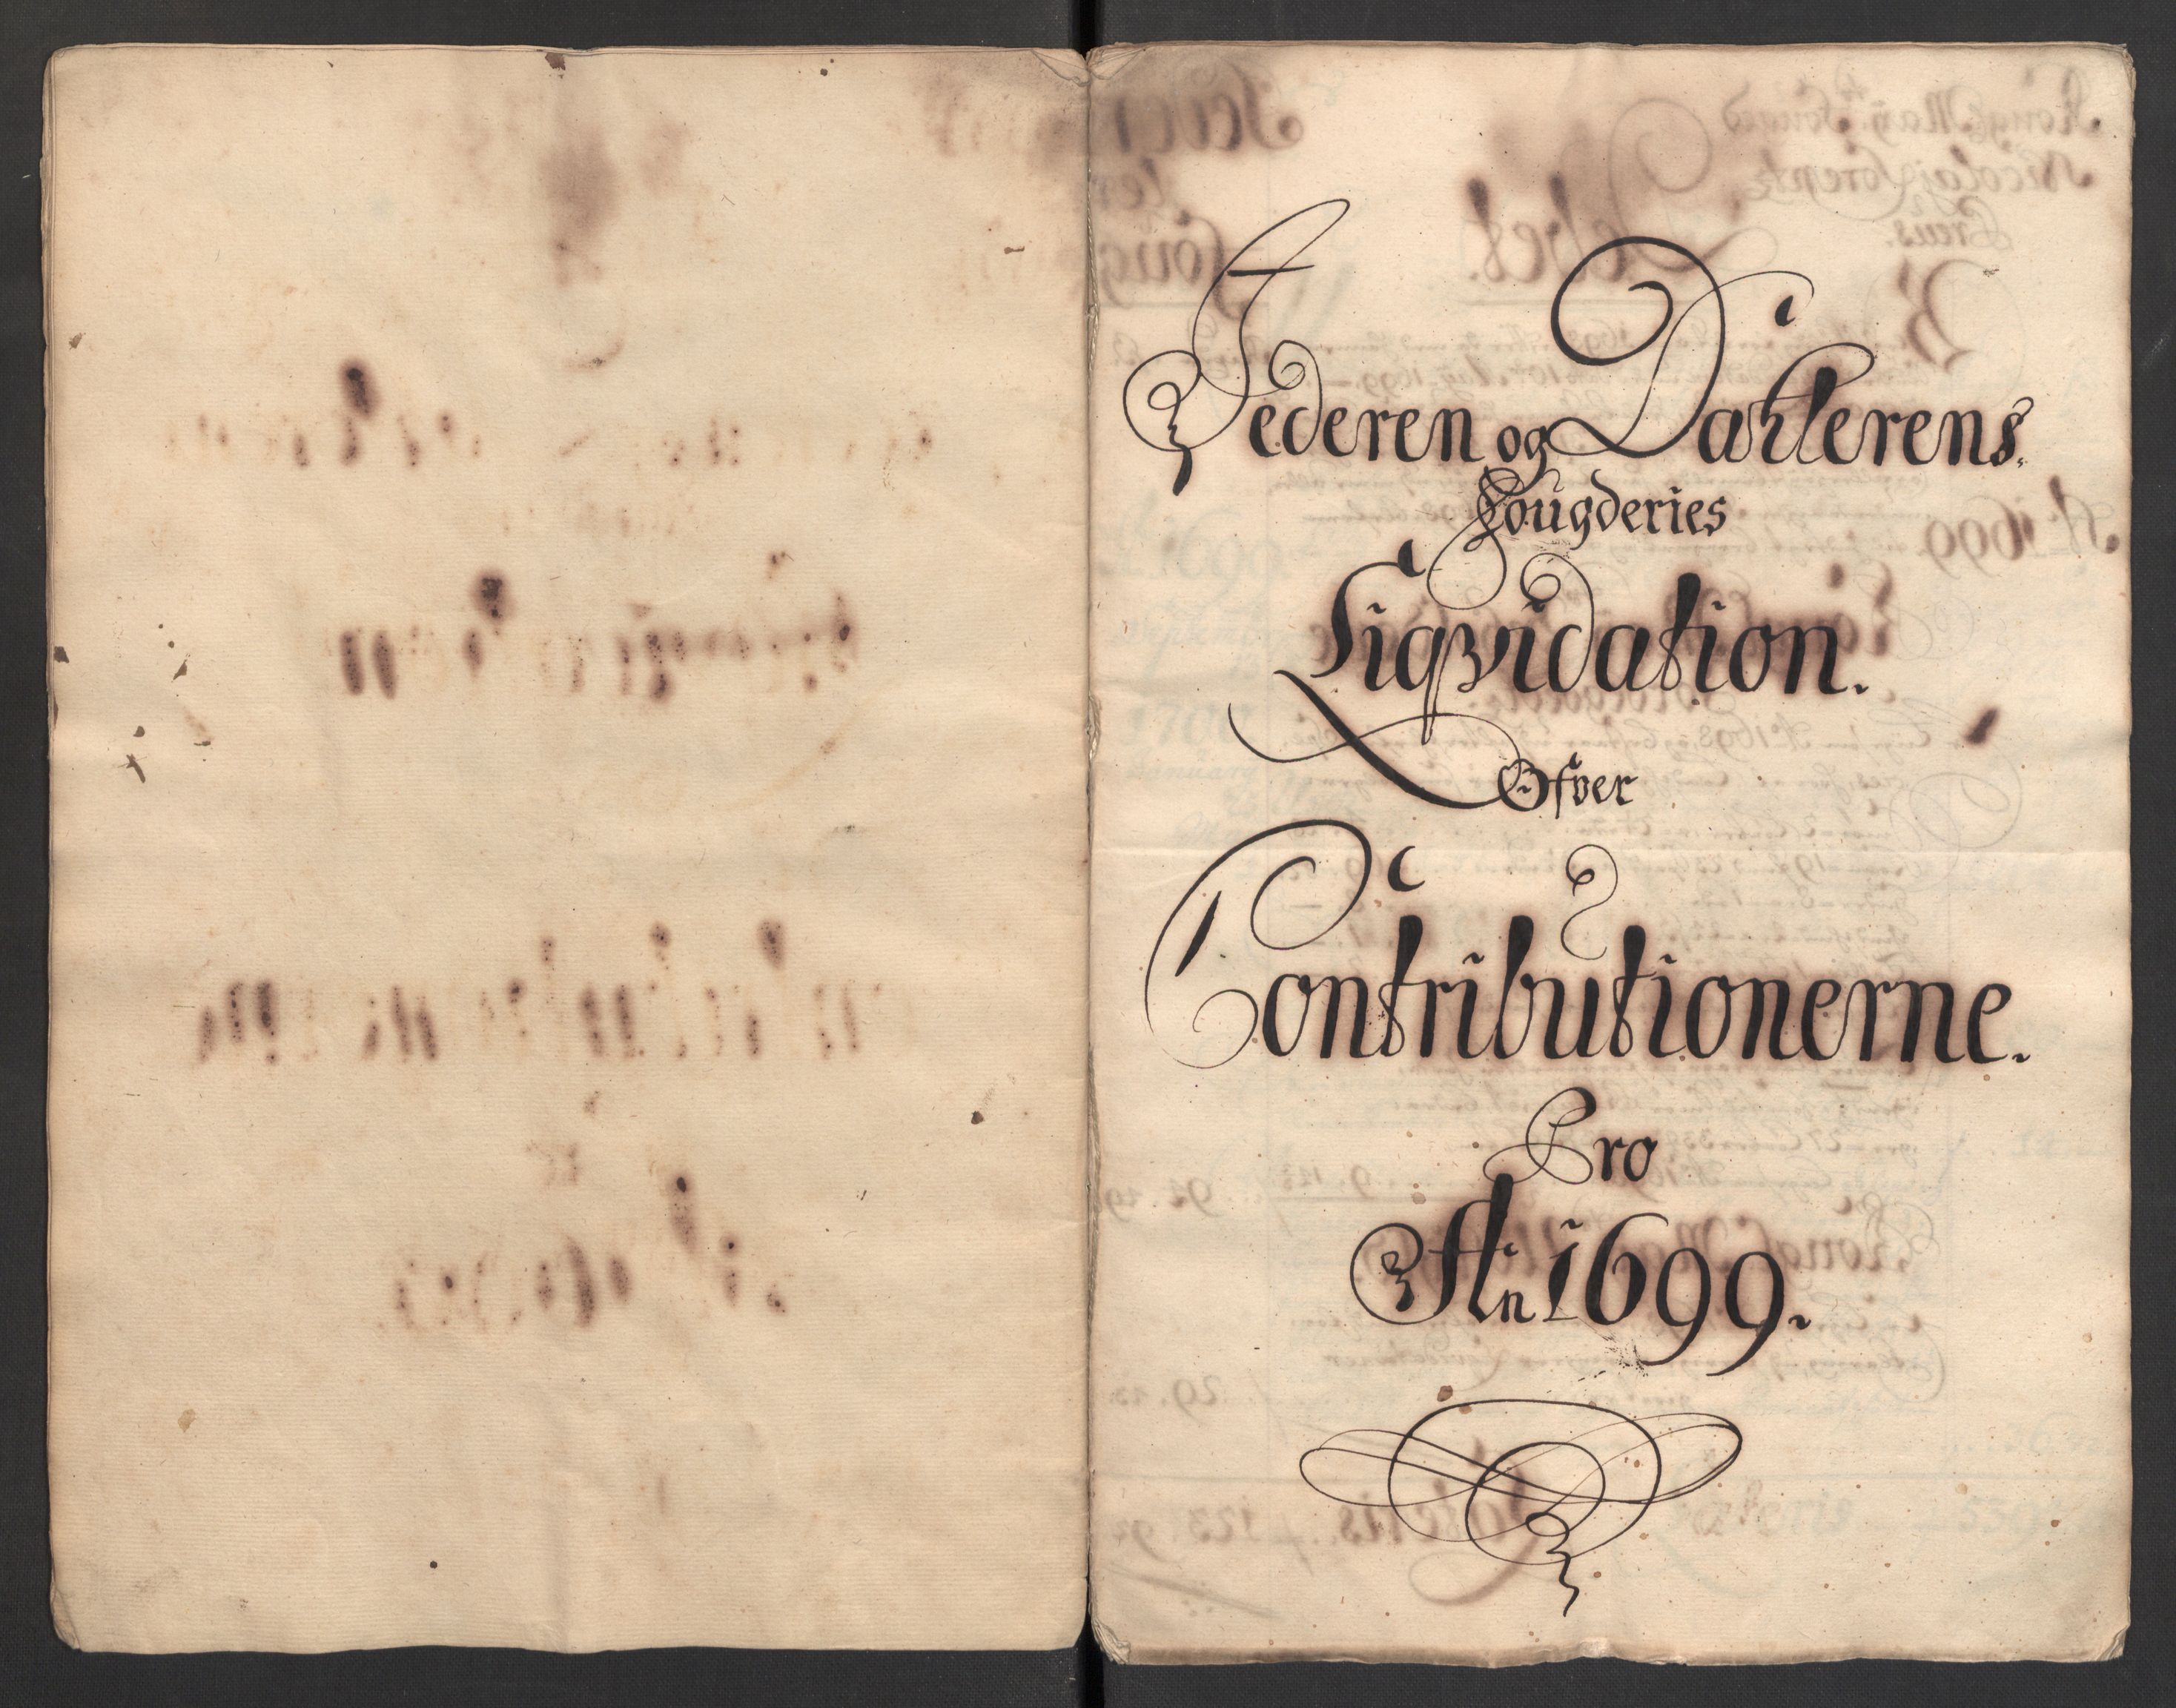 Jederen og Dahlerens.
Fougderies
Liqvidation.
Ofver
Contributionerne.
Pro
An 1699.